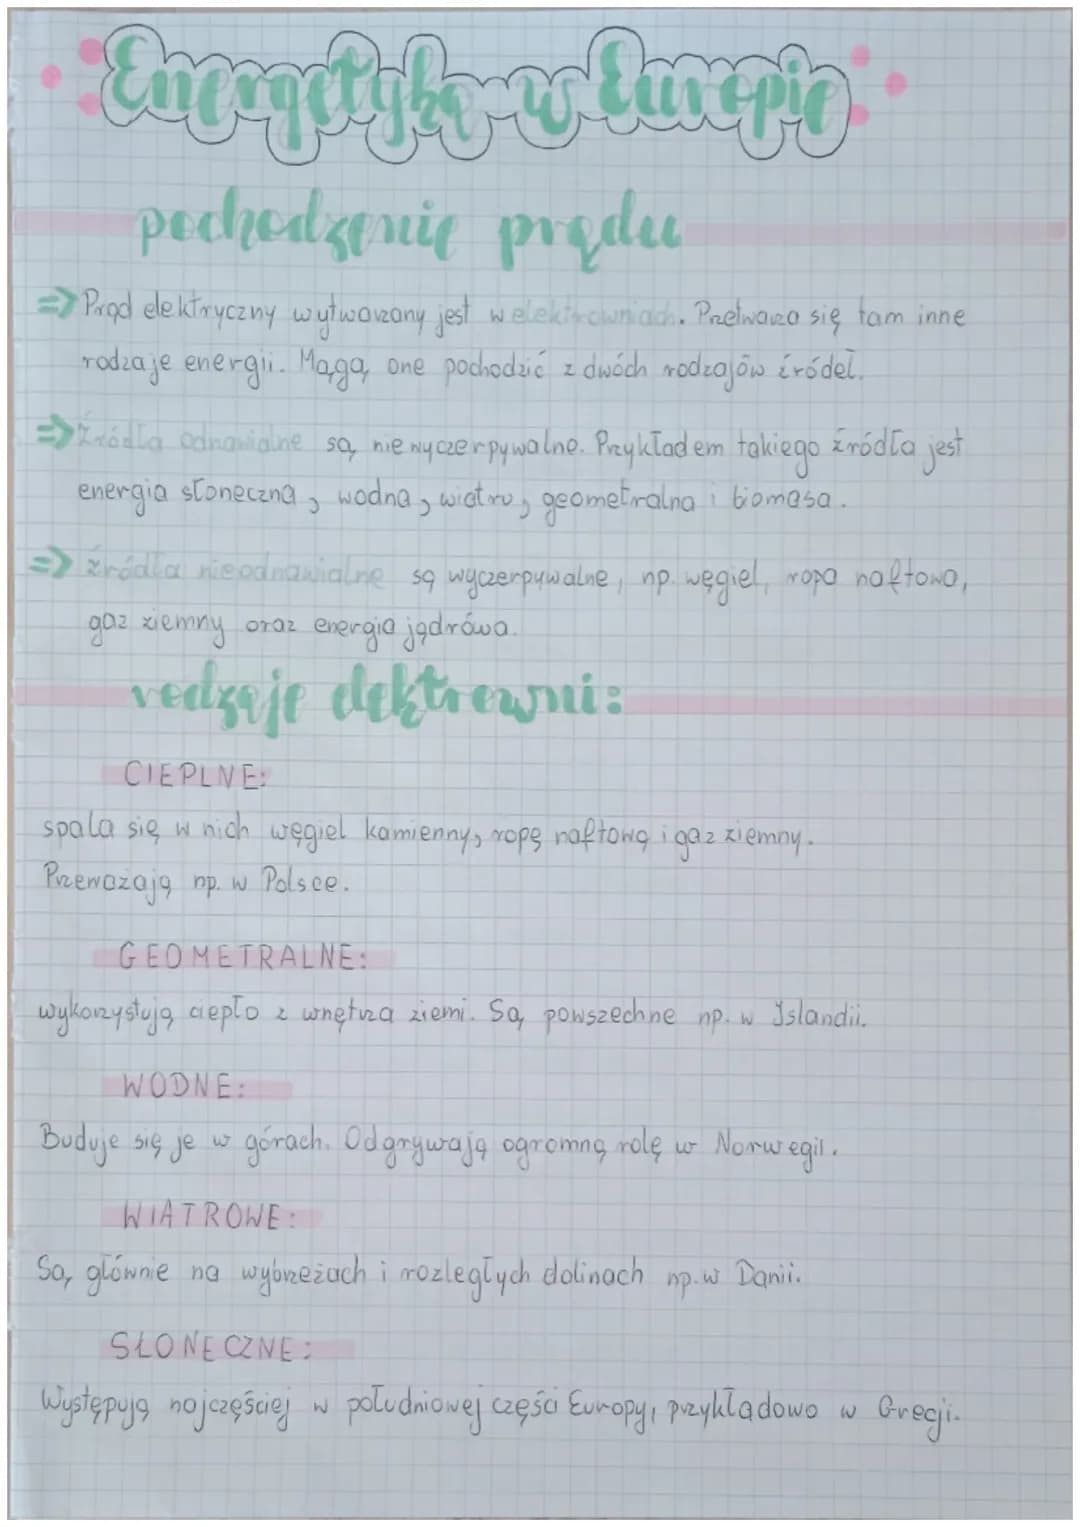 Energetyka w Europie
pochodzenie prądu
=> Prąd elektryczny wytwarzany jest w elektrowniach. Przetwarza się tam inne
rodzaje energii. Mogą one pochodzić z dwóch rodzajów źródeł.
=> Źródła odnawialne są niewyczerpywalne. Przykładem takiego źródła jest
energia słoneczna, wodna, wiatru, geometralna i biomasa.
=> źródła nieodnawialne są wyczerpywalne, np. węgiel, ropa naftowa,
gaz ziemny oraz energia jądrowa.
rodzaje elektrowni:
CIEPLNE:
spala się w nich węgiel kamienny, ropę naftową i gaz ziemny.
Przeważają np. w Polsce.
GEOMETRALNE:
wykorzystują ciepło z wnętrza ziemi. Są powszechne np. w Islandii.
WODNE:
Buduje się je w górach. Odgrywają ogromną rolę w Norwegii.
WIATROWE:
Są głównie na wybrzeżach i rozległych dolinach np. w Danii.
SŁONECZNE:
Występują najczęściej w południowej części Europy, przykładowo w Grecji.